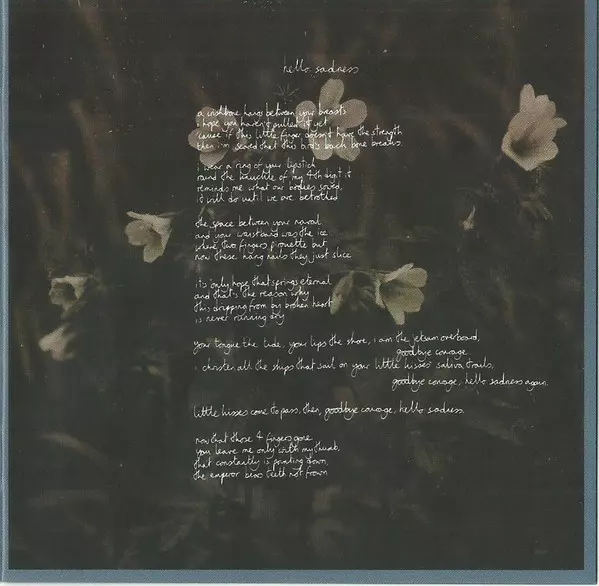 hello sadness
a wishbone hangs between your breasts
i hope you haven't pulled it yet
'cause if this little finger doesn't have the strength
then i'm scared that this bird's back bone breaks.
i wear a ring of your lipstick
round the knuckle of my 4th digit it
reminds me what our bodies said,
it will do until we are betrothed
the space between your naval
and your waistband was the ice
where two fingers pirouette but
now these hang nails they just slice
its only hope that springs eternal
and that's the reason why
this dripping from my broken heart
is never running dry
your tongue the tide, your lips the shore, i am the jetsam overboard,
goodbye courage
i christen all the ships that sail on your little kisses' saliva trails,
goodbye courage, hello sadness again.
little kisses come to pass, then, goodbye courage, hello sadness.
now that those 4 fingers gone
you leave me only with my thumb,
that constantly is pointing down,
the emperor bears teeth not frown